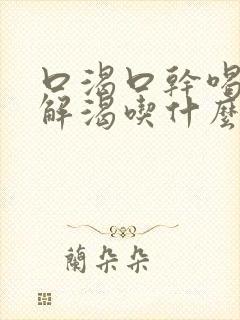 口渴口幹喝
解渴喫什麼
蘭朵朵